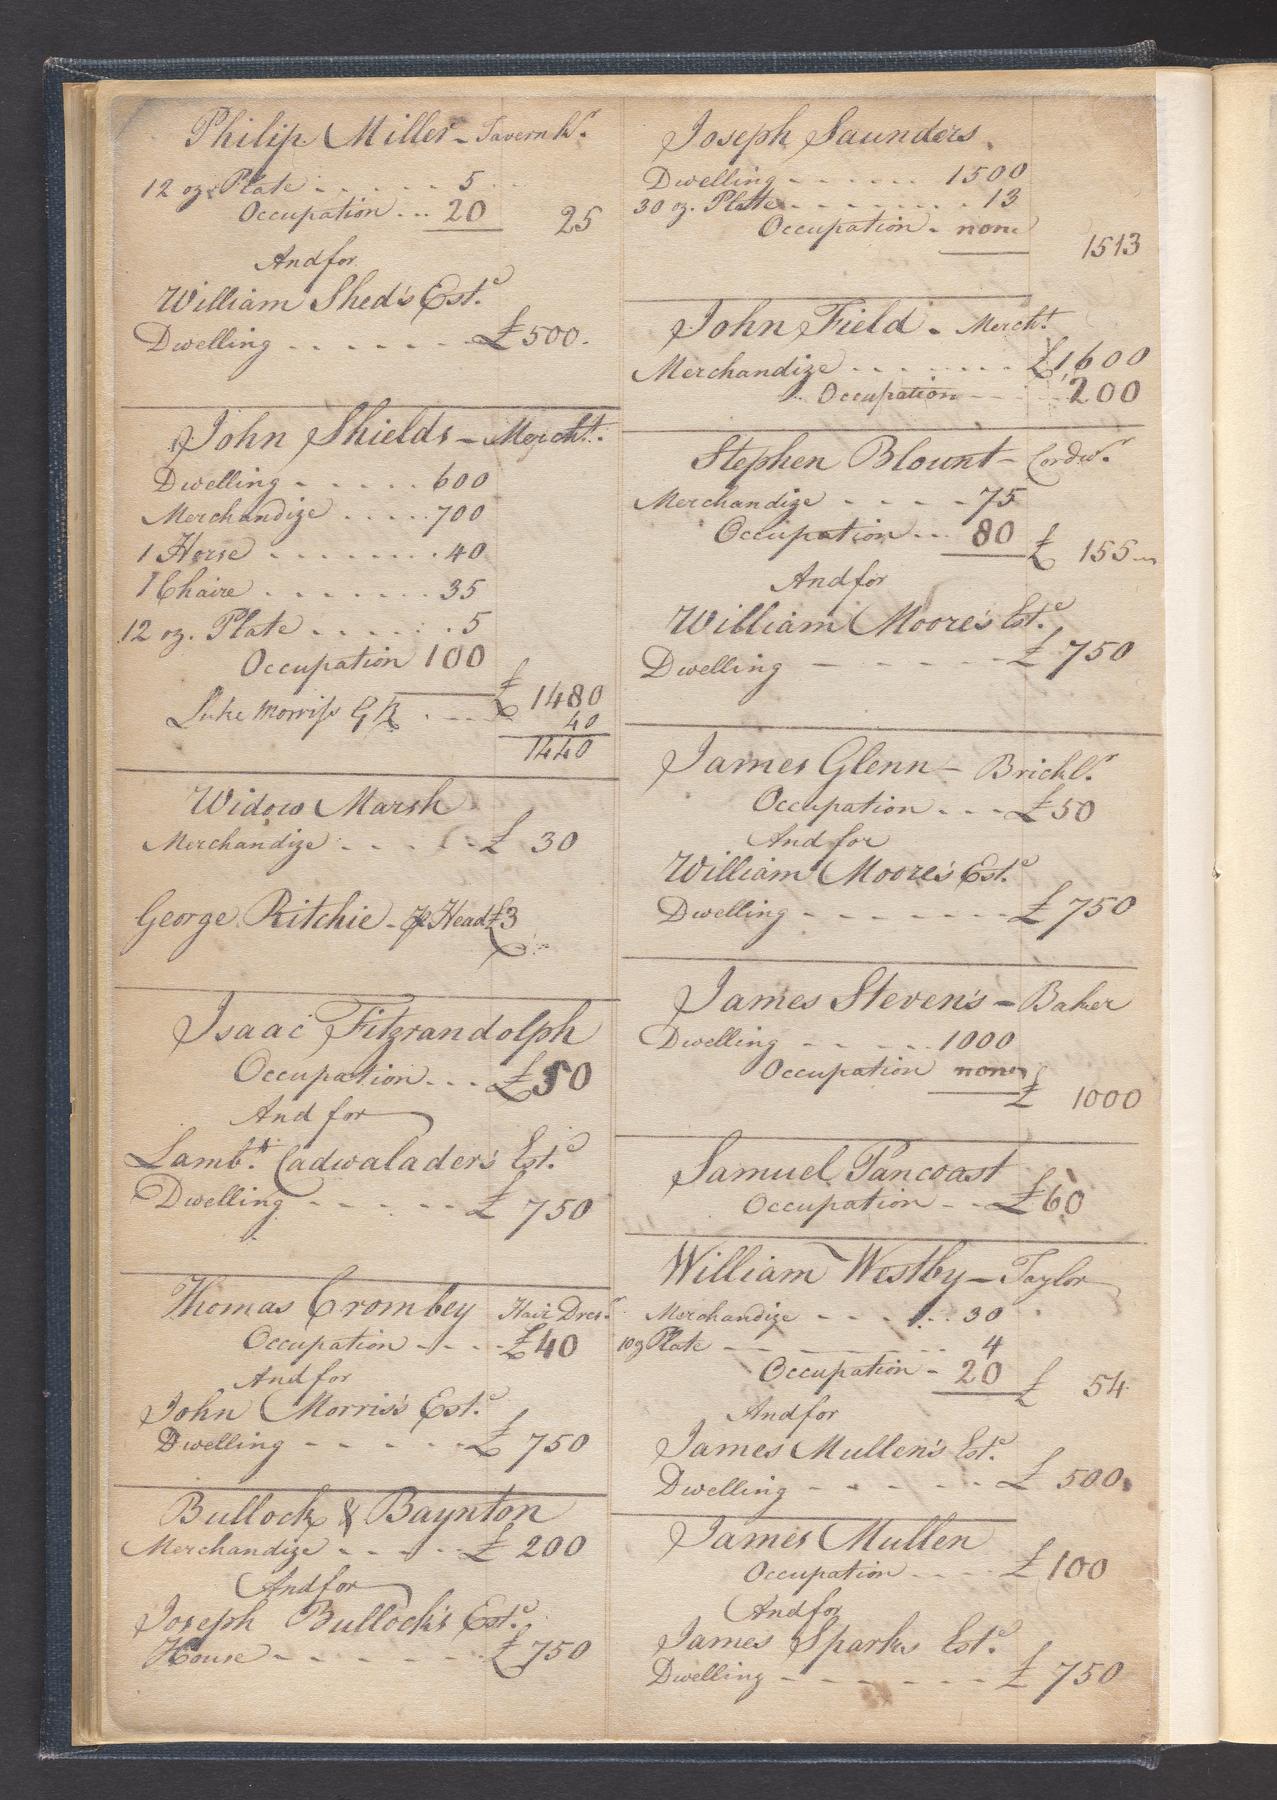 Philip Miller - Tavern Kr.
12 oz. Plate . . . . . . 5
Occupation . . . 20 25
And for
William Shed's Est.e
Dwelling . . . . . . . £500.
John Shields - Mercht.
Dwelling . . . . . 600
Merchandize . . . . 700
1 Horse . . . . . . . 40
1 Chaire . . . . . . . 35
12 oz. Plate . . . . . . 5
Occupation 100
£ 1480
Luke Morriss . . . 40
1440
Widow Marsh
Merchandize . . . . . £ 30
George Ritchie - Head £3
Isaac Fitzrandolph
Occupation . . . £50
And for
Lambt. Cadwalader's Est.e
Dwelling - - - - - £ 750
Thomas Crombey Hair Dresr.
Occupation . . . . £40
And for
John Morris's Est.e
Dwelling - - - - - £ 750
Bullock & Baynton
Merchandize - - - - £ 200
And for
Joseph Bullock's Est.e
House - - - - - - - £750
Joseph Saunders.
Dwelling - - - - - - 1500
30 oz. Plate - - - - - - - 13
Occupation - none
1513
John Field - Mercht.
Merchandize . . . . . . . £1,600
Occupation - - - - 200
Stephen Blount - Cordwr.
Merchandize - - - - - 75
Occupation . . . 80 £ 155
And for
William Moore's Est.e
Dwelling - - - - - £ 750
James Glenn - Bricklr.
Occupation . . . £50
And for
William Moore's Est.e
Dwelling - - - - - - - £ 750
James Steven's - Baker
Dwelling - - - - - 1000
Occupation none
£ 1000
Samuel Pancoast
Occupation - - £60
William Westby - Taylor
Merchandize - - - - - 30
10 oz Plate - - - - - - - 4
Occupation - 20 £ 54
And for
James Mullen's Est.e
Dwelling - - - - - - £ 500.
James Mullen
Occupation . . . . £100
And for
James Sparks Est.e
Dwelling - - - - - - £ 750